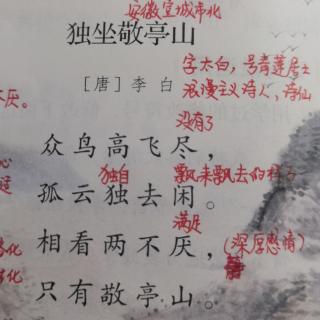 安徽宣城市北
独坐敬亭山
字太白，号青莲居士
[唐] 李 白
浪漫主义诗人，诗仙
厌。
没有了
众鸟高飞尽，
独自 飘来飘去的样子
孤云独去闲。
满足
相看两不厌，(深厚感情)
化
只有敬亭山。
化